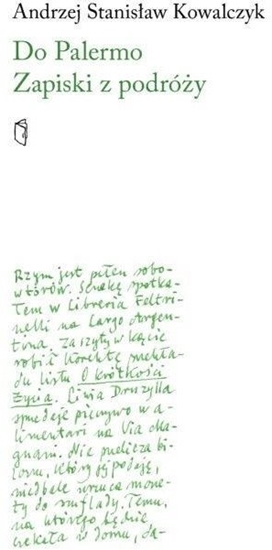 Andrzej Stanisław Kowalczyk
Do Palermo
Zapiski z podróży
Rzym jest pełen sobo-
wtórów. Senekę spotka-
łem w Libreria Feltri-
nelli na Largo Argen-
tina. Zaszyty w kącie
robił korektę przekła-
du listu O krótkości
życia. Livia Druzylla
sprzedaje pieczywo w a-
limentari na Via Ma-
gnam. Nie przelicza bi-
lonu, który jej podaję,
niedbale wrzuca mone-
ty do szuflady. Temu,
na którego będzie
czekała w domu, da-